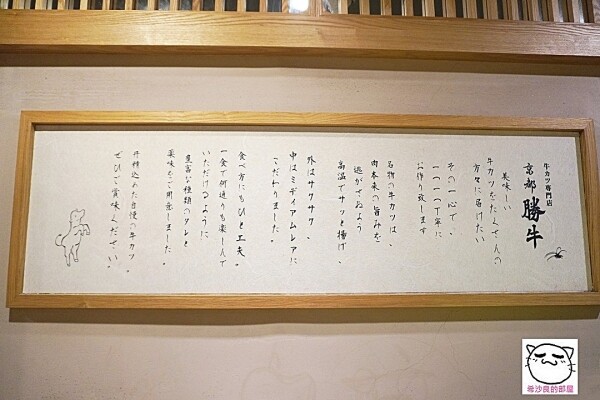 牛カツ専門店
京都 勝牛
美味しい
牛カツをたくさんの
方々に届けたい
その一心で、
一つ一つ丁寧に
お作り致します
名物の牛カツは、
肉本来の旨みを
逃がさぬよう
高温でサッと揚げ、
外はサクサク、
中はミディアムレアに
こだわりました。
食べ方にもひと工夫。
一食で何通りも楽しんで
いただけるように
豊富な種類のツレと
薬味をご用意しました。
丹精込めた自慢の牛カツ。
ぜひご賞味ください。
希沙良的部屋